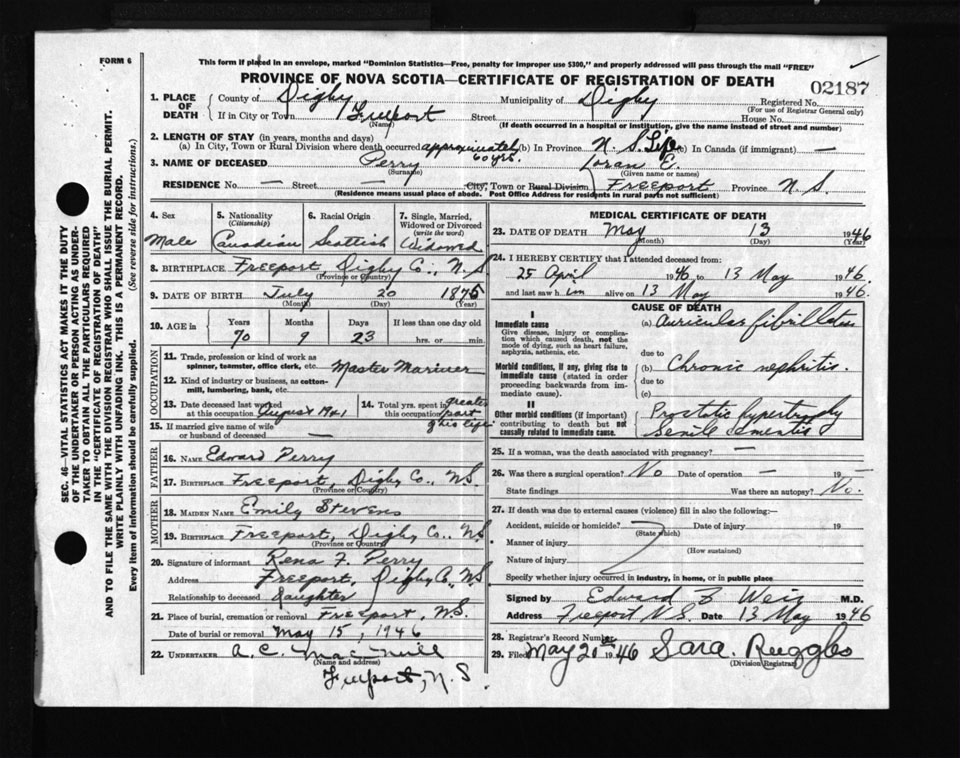 FORM 6
This form if placed in an envelope, marked "Dominion Statistics—Free, penalty for improper use $300," and properly addressed will pass through the mail "FREE"
PROVINCE OF NOVA SCOTIA—CERTIFICATE OF REGISTRATION OF DEATH
02187
1. PLACE OF DEATH County of Digby Municipality of Digby Registered No.
(For use of Registrar General only)
If in City or Town Freeport Street House No.
(Name) (If death occurred in a hospital or institution, give the name instead of street and number)
2. LENGTH OF STAY (in years, months and days)
(a) In City, Town or Rural Division where death occurred approximately 60 yrs. (b) In Province N. S. Life (c) In Canada (if immigrant) —
3. NAME OF DECEASED Perry Loran E.
(Surname) (Given name or names)
RESIDENCE No — Street — City, Town or Rural Division Freeport Province N. S.
(Residence means usual place of abode. Post Office Address for residents in rural parts not sufficient)
SEC. 46—VITAL STATISTICS ACT MAKES IT THE DUTY
OF THE UNDERTAKER OR PERSON ACTING AS UNDER-
TAKER TO OBTAIN ALL THE PARTICULARS REQUIRED
IN THE "CERTIFICATE OF REGISTRATION OF DEATH"
AND TO FILE THE SAME WITH THE DIVISION REGISTRAR WHO SHALL ISSUE THE BURIAL PERMIT.
WRITE PLAINLY WITH UNFADING INK. THIS IS A PERMANENT RECORD.
Every item of information should be carefully supplied. (See reverse side for instructions.)
4. Sex 5. Nationality 6. Racial Origin 7. Single, Married,
(Citizenship) Widowed or Divorced
(write the word)
Male Canadian Scottish Widowed
8. BIRTHPLACE Freeport Digby Co., N.S
(Province or Country)
9. DATE OF BIRTH July 20 1875
(Month) (Day) (Year)
10. AGE in Years Months Days If less than one day old
70 9 23 hrs. or min.
OCCUPATION
11. Trade, profession or kind of work as
spinner, teamster, office clerk, etc. Master Mariner
12. Kind of industry or business, as cotton-
mill, lumbering, bank, etc.
13. Date deceased last worked
at this occupation August 1941
14. Total yrs. spent in
this occupation greater part of his life
15. If married give name of wife
or husband of deceased —
FATHER
16. NAME Edward Perry
17. BIRTHPLACE Freeport, Digby Co., N.S.
(Province or Country)
MOTHER
18. MAIDEN NAME Emily Stevens
19. BIRTHPLACE Freeport, Digby Co., N.S
(Province or Country)
20. Signature of informant Rena F. Perry
Address Freeport, Digby Co., N.S
Relationship to deceased Daughter
21. Place of burial, cremation or removal Freeport, N.S.
Date of burial or removal May 15, 1946
22. UNDERTAKER A. C. MacNeill
(Name and address)
Freeport, N. S.
MEDICAL CERTIFICATE OF DEATH
23. DATE OF DEATH May 13 1946
(Month) (Day) (Year)
24. I HEREBY CERTIFY that I attended deceased from:
25 April 1946 to 13 May 1946.
and last saw him alive on 13 May 1946.
CAUSE OF DEATH
I
Immediate cause
Give disease, injury or complica-
tion which caused death, not the
mode of dying, such as heart failure,
asphyxia, asthenia, etc.
(a) Auricular fibrillation
due to
Morbid conditions, if any, giving rise to
immediate cause (stated in order
proceeding backwards from im-
mediate cause).
(b) Chronic nephritis.
due to
(c)
II
Other morbid conditions (if important)
contributing to death but not
causally related to immediate cause.
Prostatic hypertrophy
Senile dementia
25. If a woman, was the death associated with pregnancy? —
26. Was there a surgical operation? No Date of operation — 19 —
State findings Was there an autopsy? No.
27. If death was due to external causes (violence) fill in also the following:—
Accident, suicide or homicide? Date of injury 19
(State which)
Manner of injury
(How sustained)
Nature of injury
Specify whether injury occurred in industry, in home, or in public place
Signed by Edward Z Weir M.D.
Address Freeport N.S. Date 13 May 1946
28. Registrar's Record Number
29. Filed May 20th 1946 Sara. Ruggles
(Division Registrar)